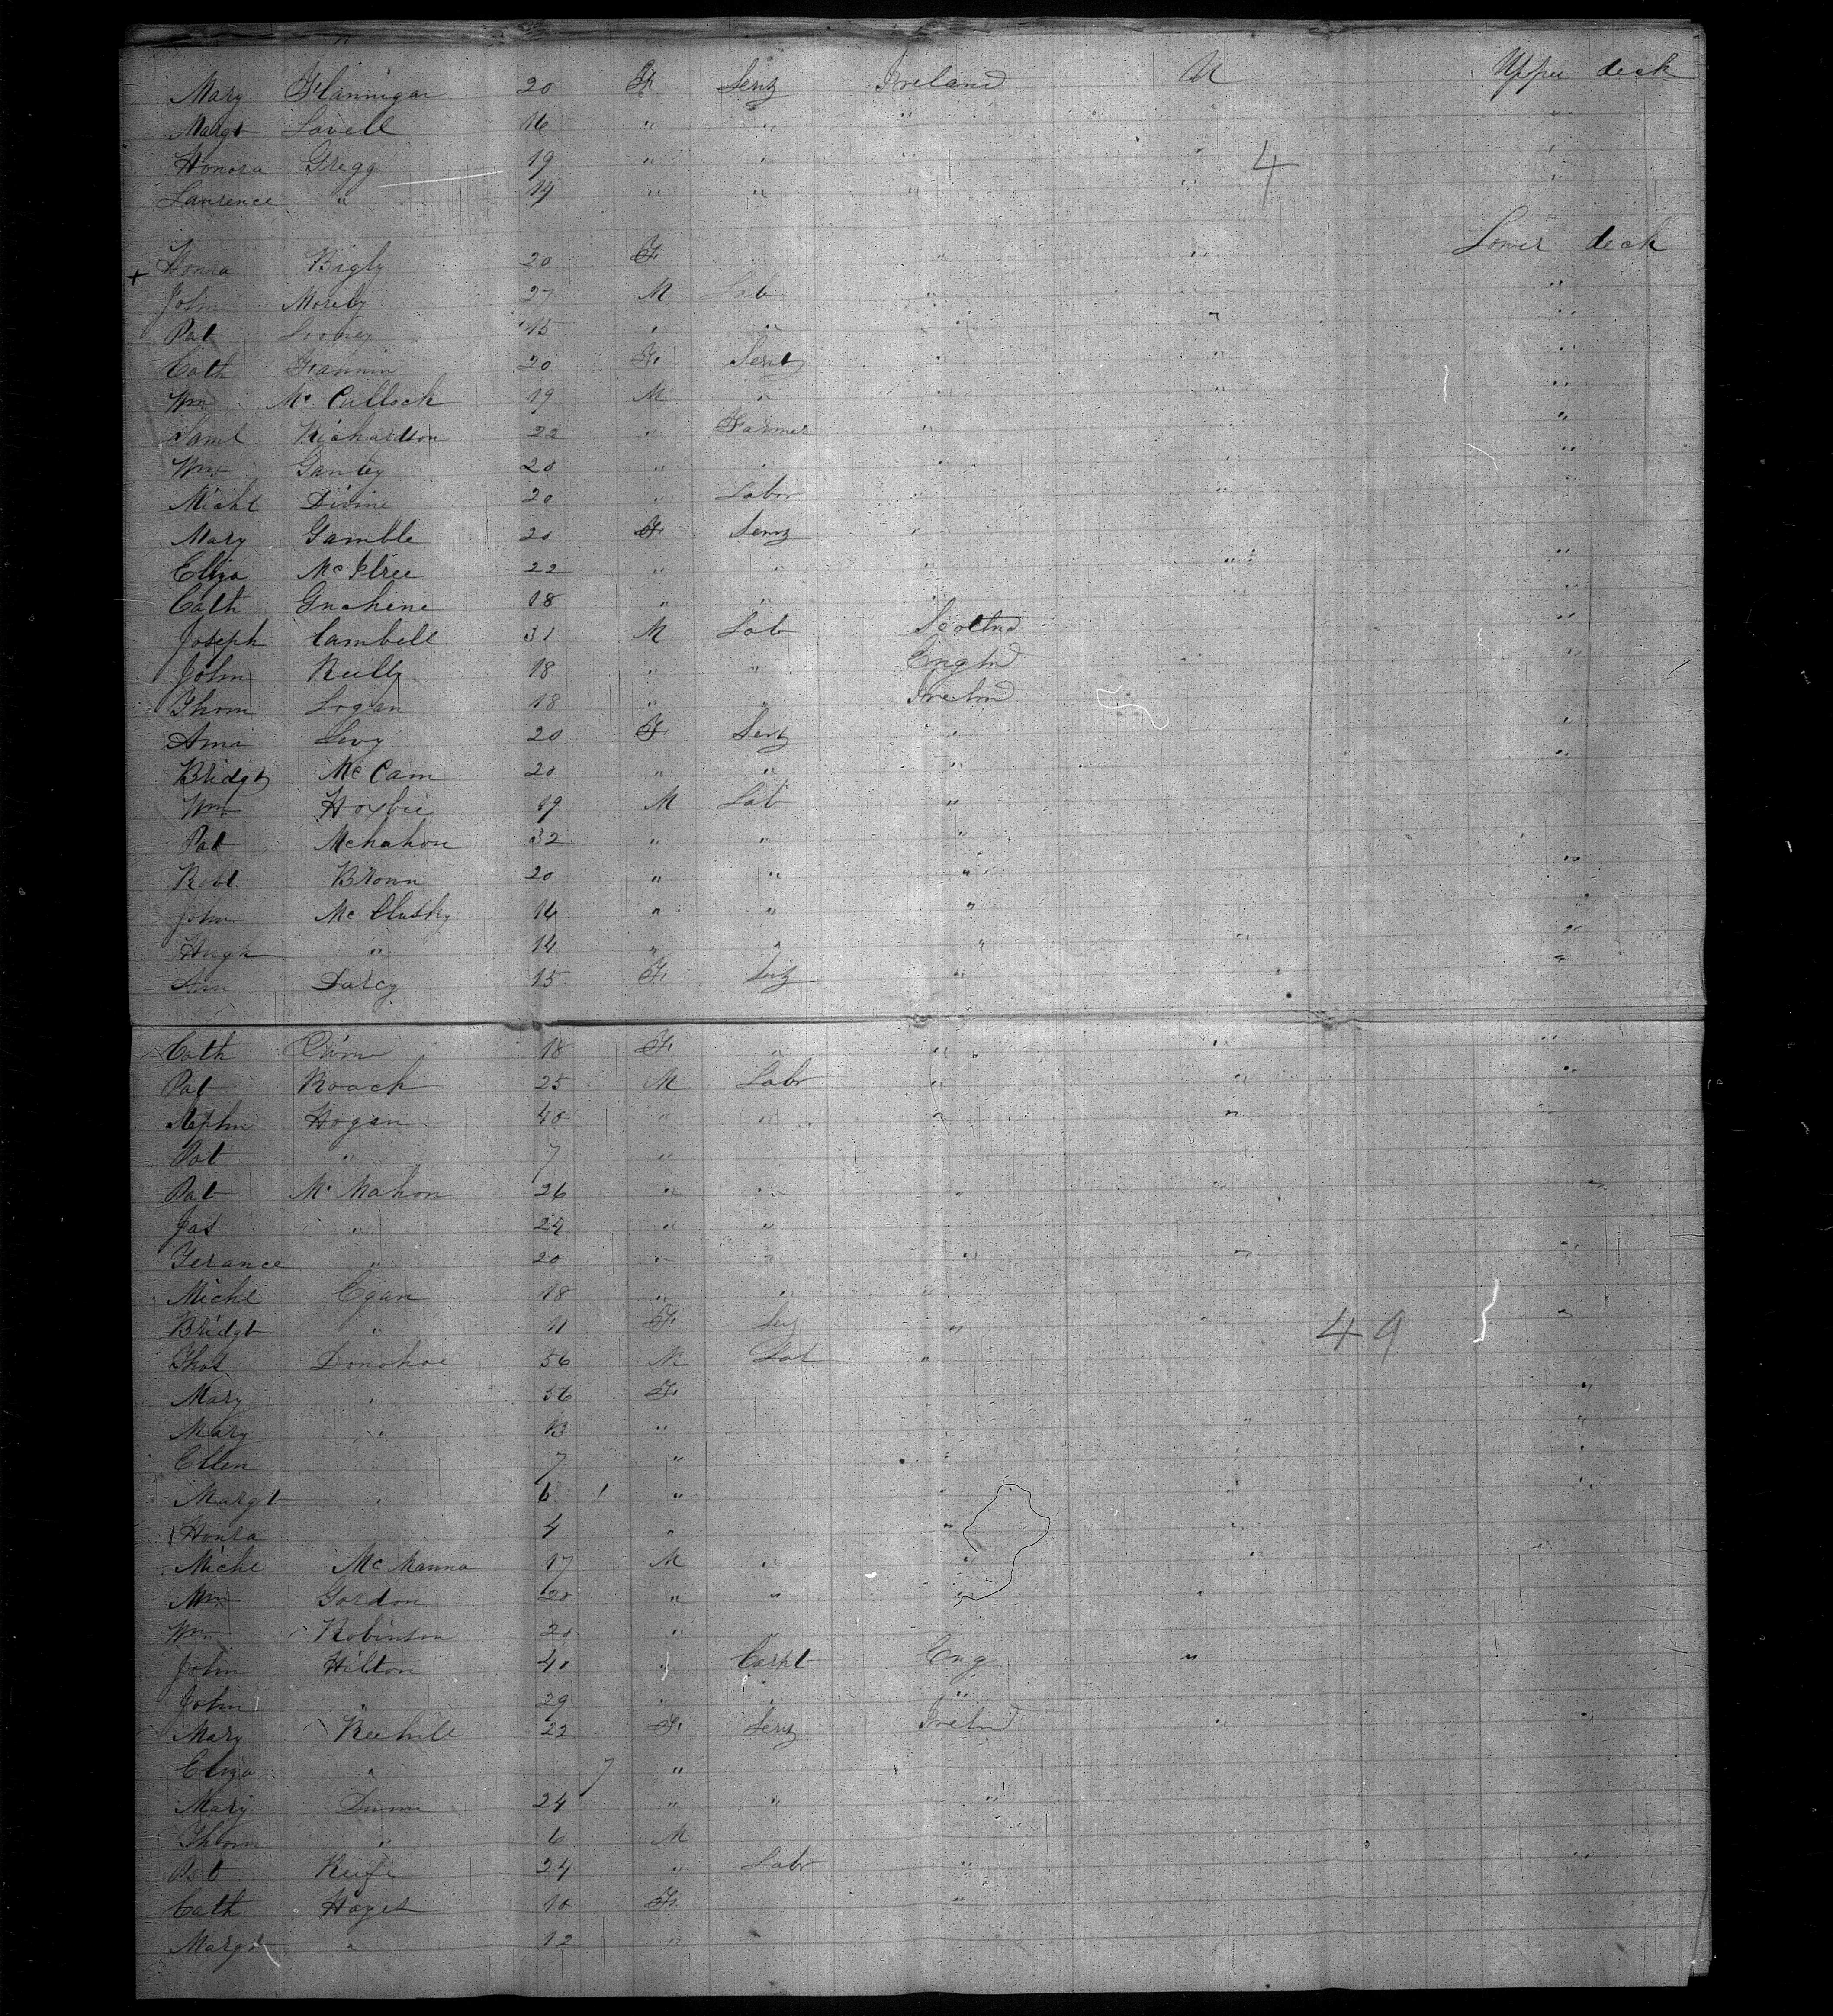 Mary Flannigan 20 F Serv Ireland U Upper deck
Margt Lovell 16 " " " "
Honora Gregg 19 " " " " "
4
Laurence " 14 " " " " "
Lower deck
+ Honra Bigly 20 F " " "
John Morely 27 M Lab " " "
Pat Looney 15 " " " " "
Cath Fannin 20 F Servt " " "
Wm Mc Cullock 19 M " " " "
Saml Richardson 22 " Farmer " "
Wm Ganley 20 " " " " "
Michl Divine 20 " Labor " " "
Mary Gamble 20 F Serv "
Eliza Mc Elree 22 " " " " "
Cath Gnahene 18 " " " "
Joseph Cambell 31 M Lab Scotlnd "
John Reilly 18 " " Englnd " "
Thom Logan 18 " " Irelnd
Ann Levy 20 F Serv " "
Bridgt Mc Cam 20 " " " "
Wm Hoxbie 19 M Lab "
Pat Mchahon 32 " " "
Robt Brown 20 " " " "
John Mc Clusky 16 " " " "
Hugh " 14 " " " " "
Ann Darcy 15 F Serv " "
Cath 18 F " " " "
Pat Roach 25 M Labr " " "
Stephn Hogan 40 " " " " "
Pat " 7 "
Pat Mc Mahon 26 " " " " "
Jas " 24 " "
Terance " 20 " " " " "
Michl Egan 18 " " "
Bridgt " 11 F Serv " " "
49
Thos Donohoe 56 M Lab "
Mary " 56 F "
Mary " 13 " " "
Ellen " 7 " " " "
Margt " 6 " " " "
Honra 4 " " "
Michl Mc Manna 17 M " " "
Wm Gordon 20 " " " "
Wm Robinson 20 "
John Hilton 40 " Carpt Eng "
John " 29 " " "
Mary 22 F Serv Irelnd " "
Eliza " 7 "
Mary Dunn 24 " " "
Thom " 6 M
Pat Keife 24 " Labr " "
Cath Hayes 10 F "
Margt " 12 "